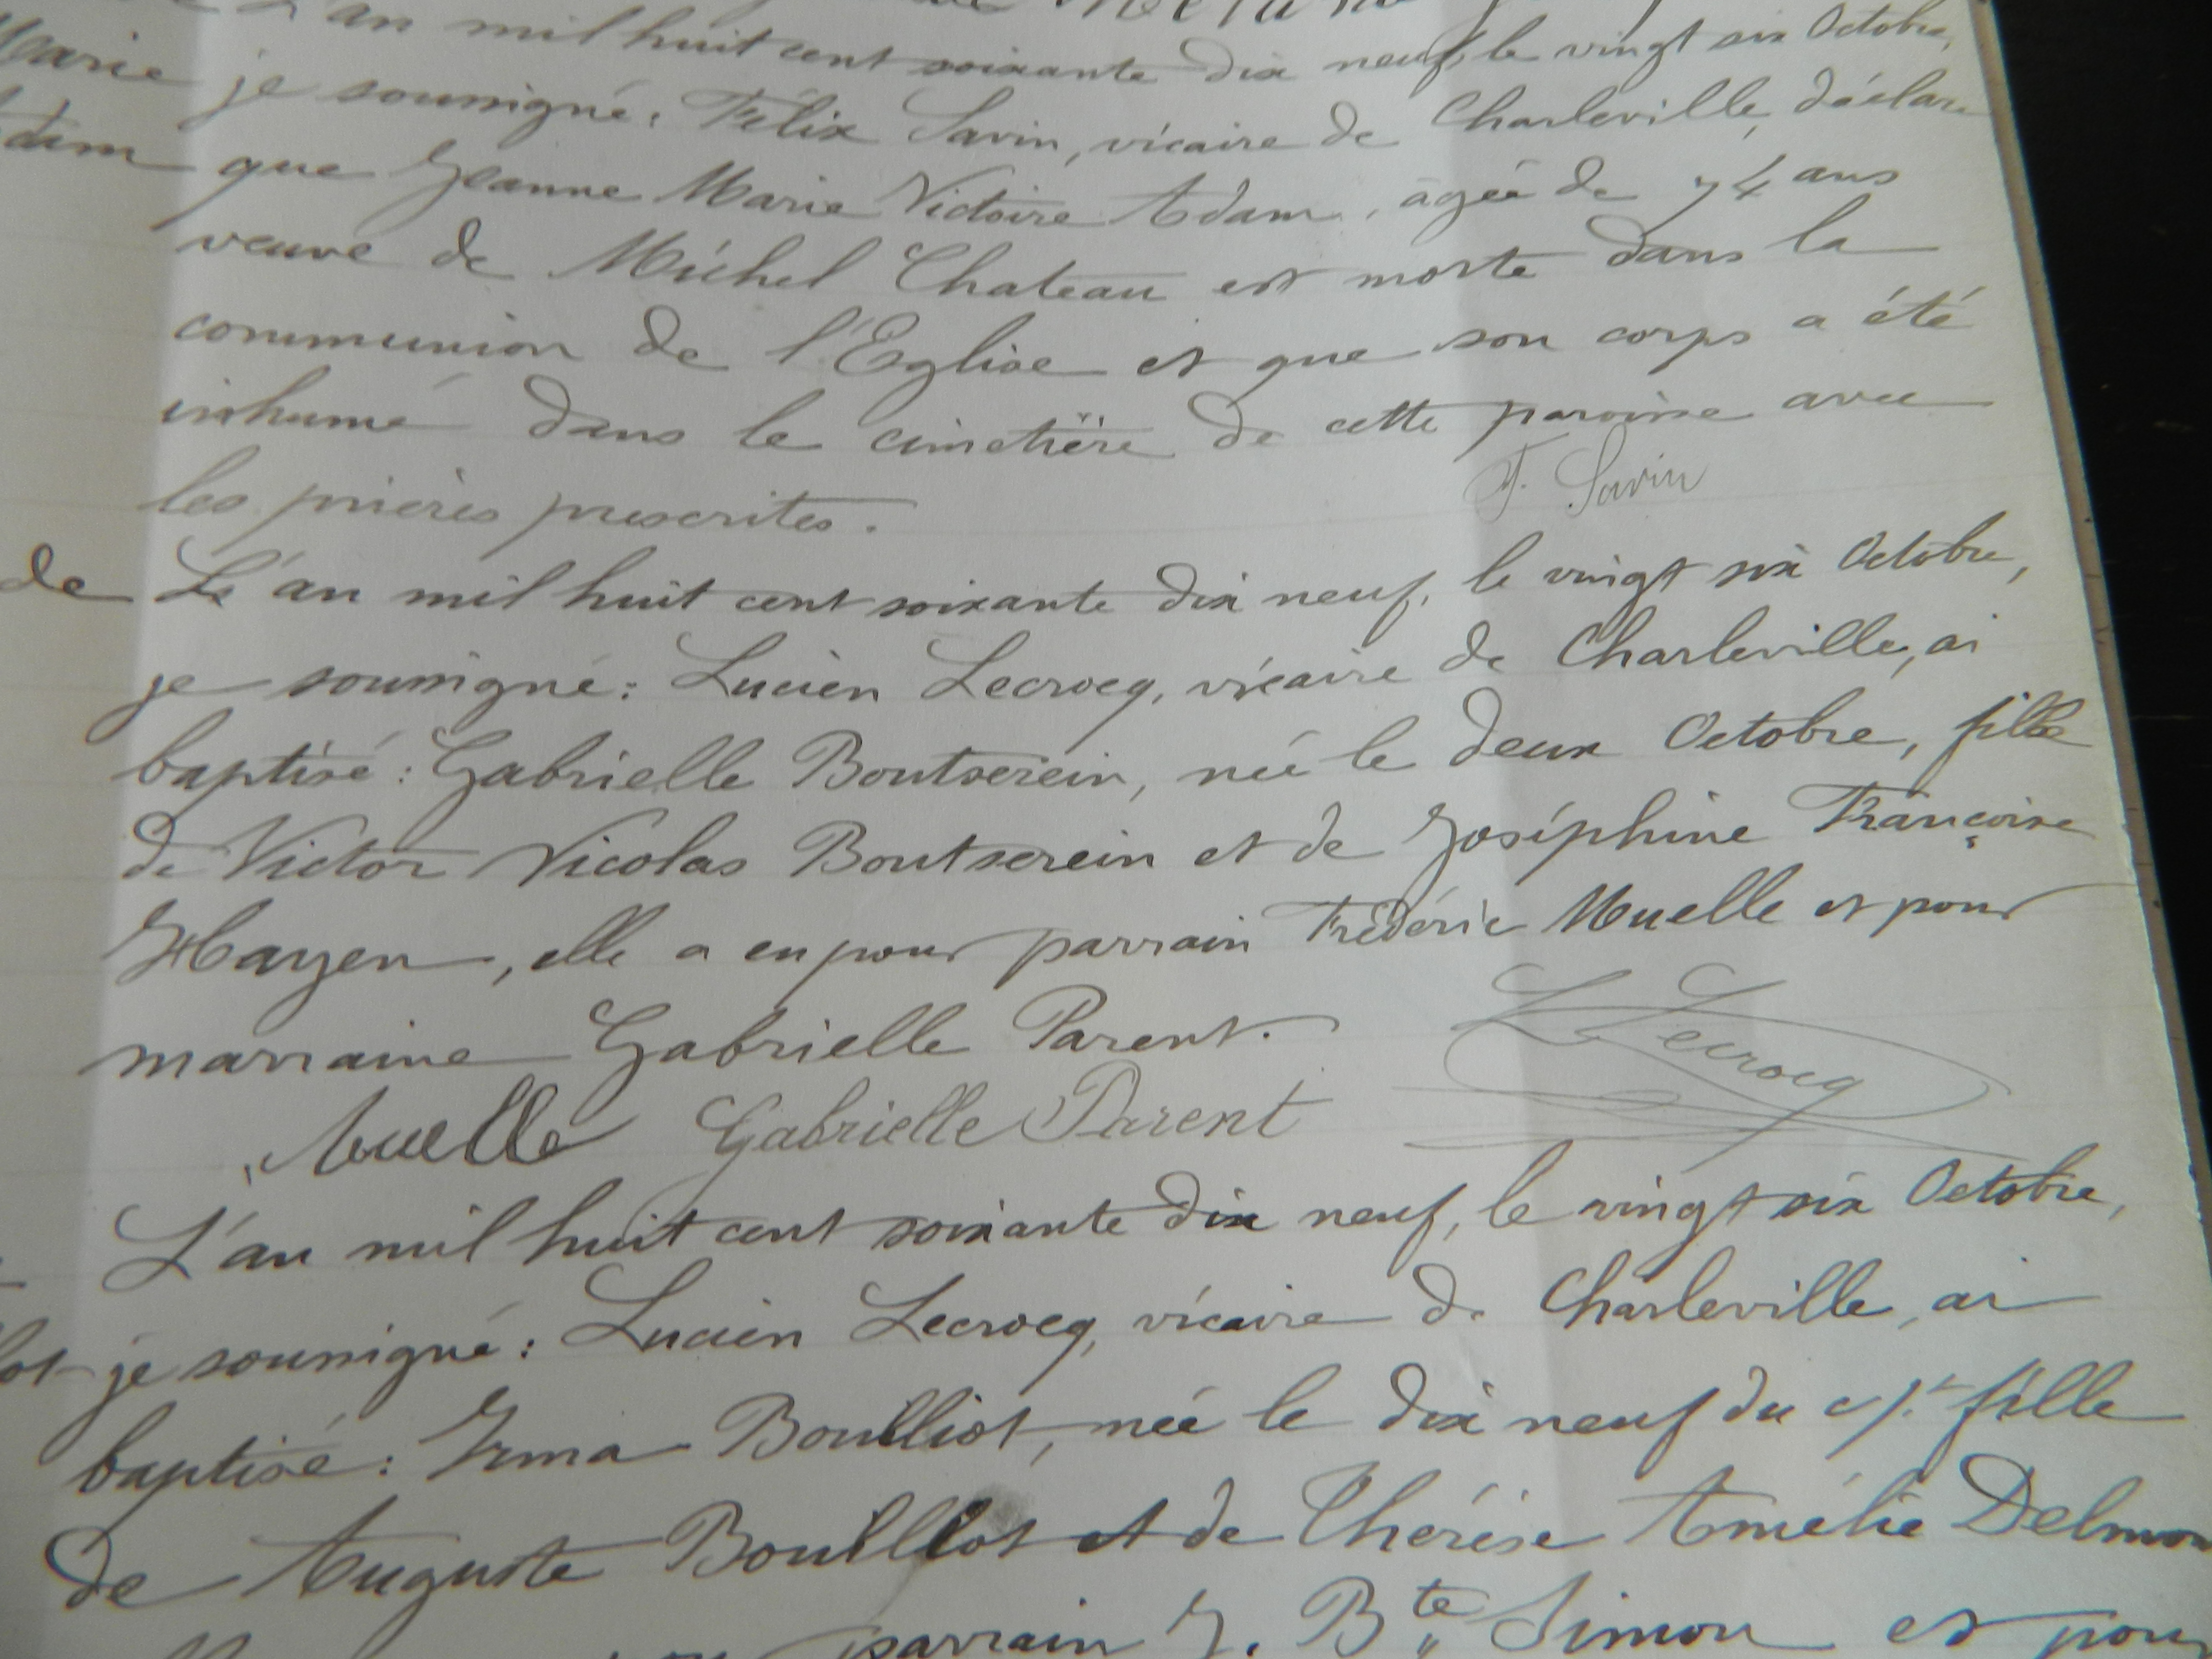 L'an mil huit cent soixante dix neuf, le vingt six Octobre,
Marie je soussigné, Félix Savin, vicaire de Charleville, déclare
que Jeanne Marie Victoire Adam, âgée de 74 ans
veuve de Michel Chateau est morte dans la
communion de l'Eglise et que son corps a été
inhumé dans le cimetière de cette paroisse avec
les prières prescrites.
F. Savin
de L'an mil huit cent soixante dix neuf, le vingt six Octobre,
je soussigné: Lucien Lecrocq, vicaire de Charleville, ai
baptisé: Gabrielle Boutserein, née le deux Octobre, fille
de Victor Nicolas Boutserein et de Joséphine Françoise
Hayen, elle a eu pour parrain Frédéric Muelle et pour
marraine Gabrielle Parent.
L Lecrocq
Muelle Gabrielle Parent
L'an mil huit cent soixante dix neuf, le vingt six Octobre,
je soussigné: Lucien Lecrocq, vicaire de Charleville, ai
baptisé: Irma Bouillot, née le dix neuf du ct fille
de Auguste Bouillot et de Thérèse Amélie
parrain J. Bte Simon et pour